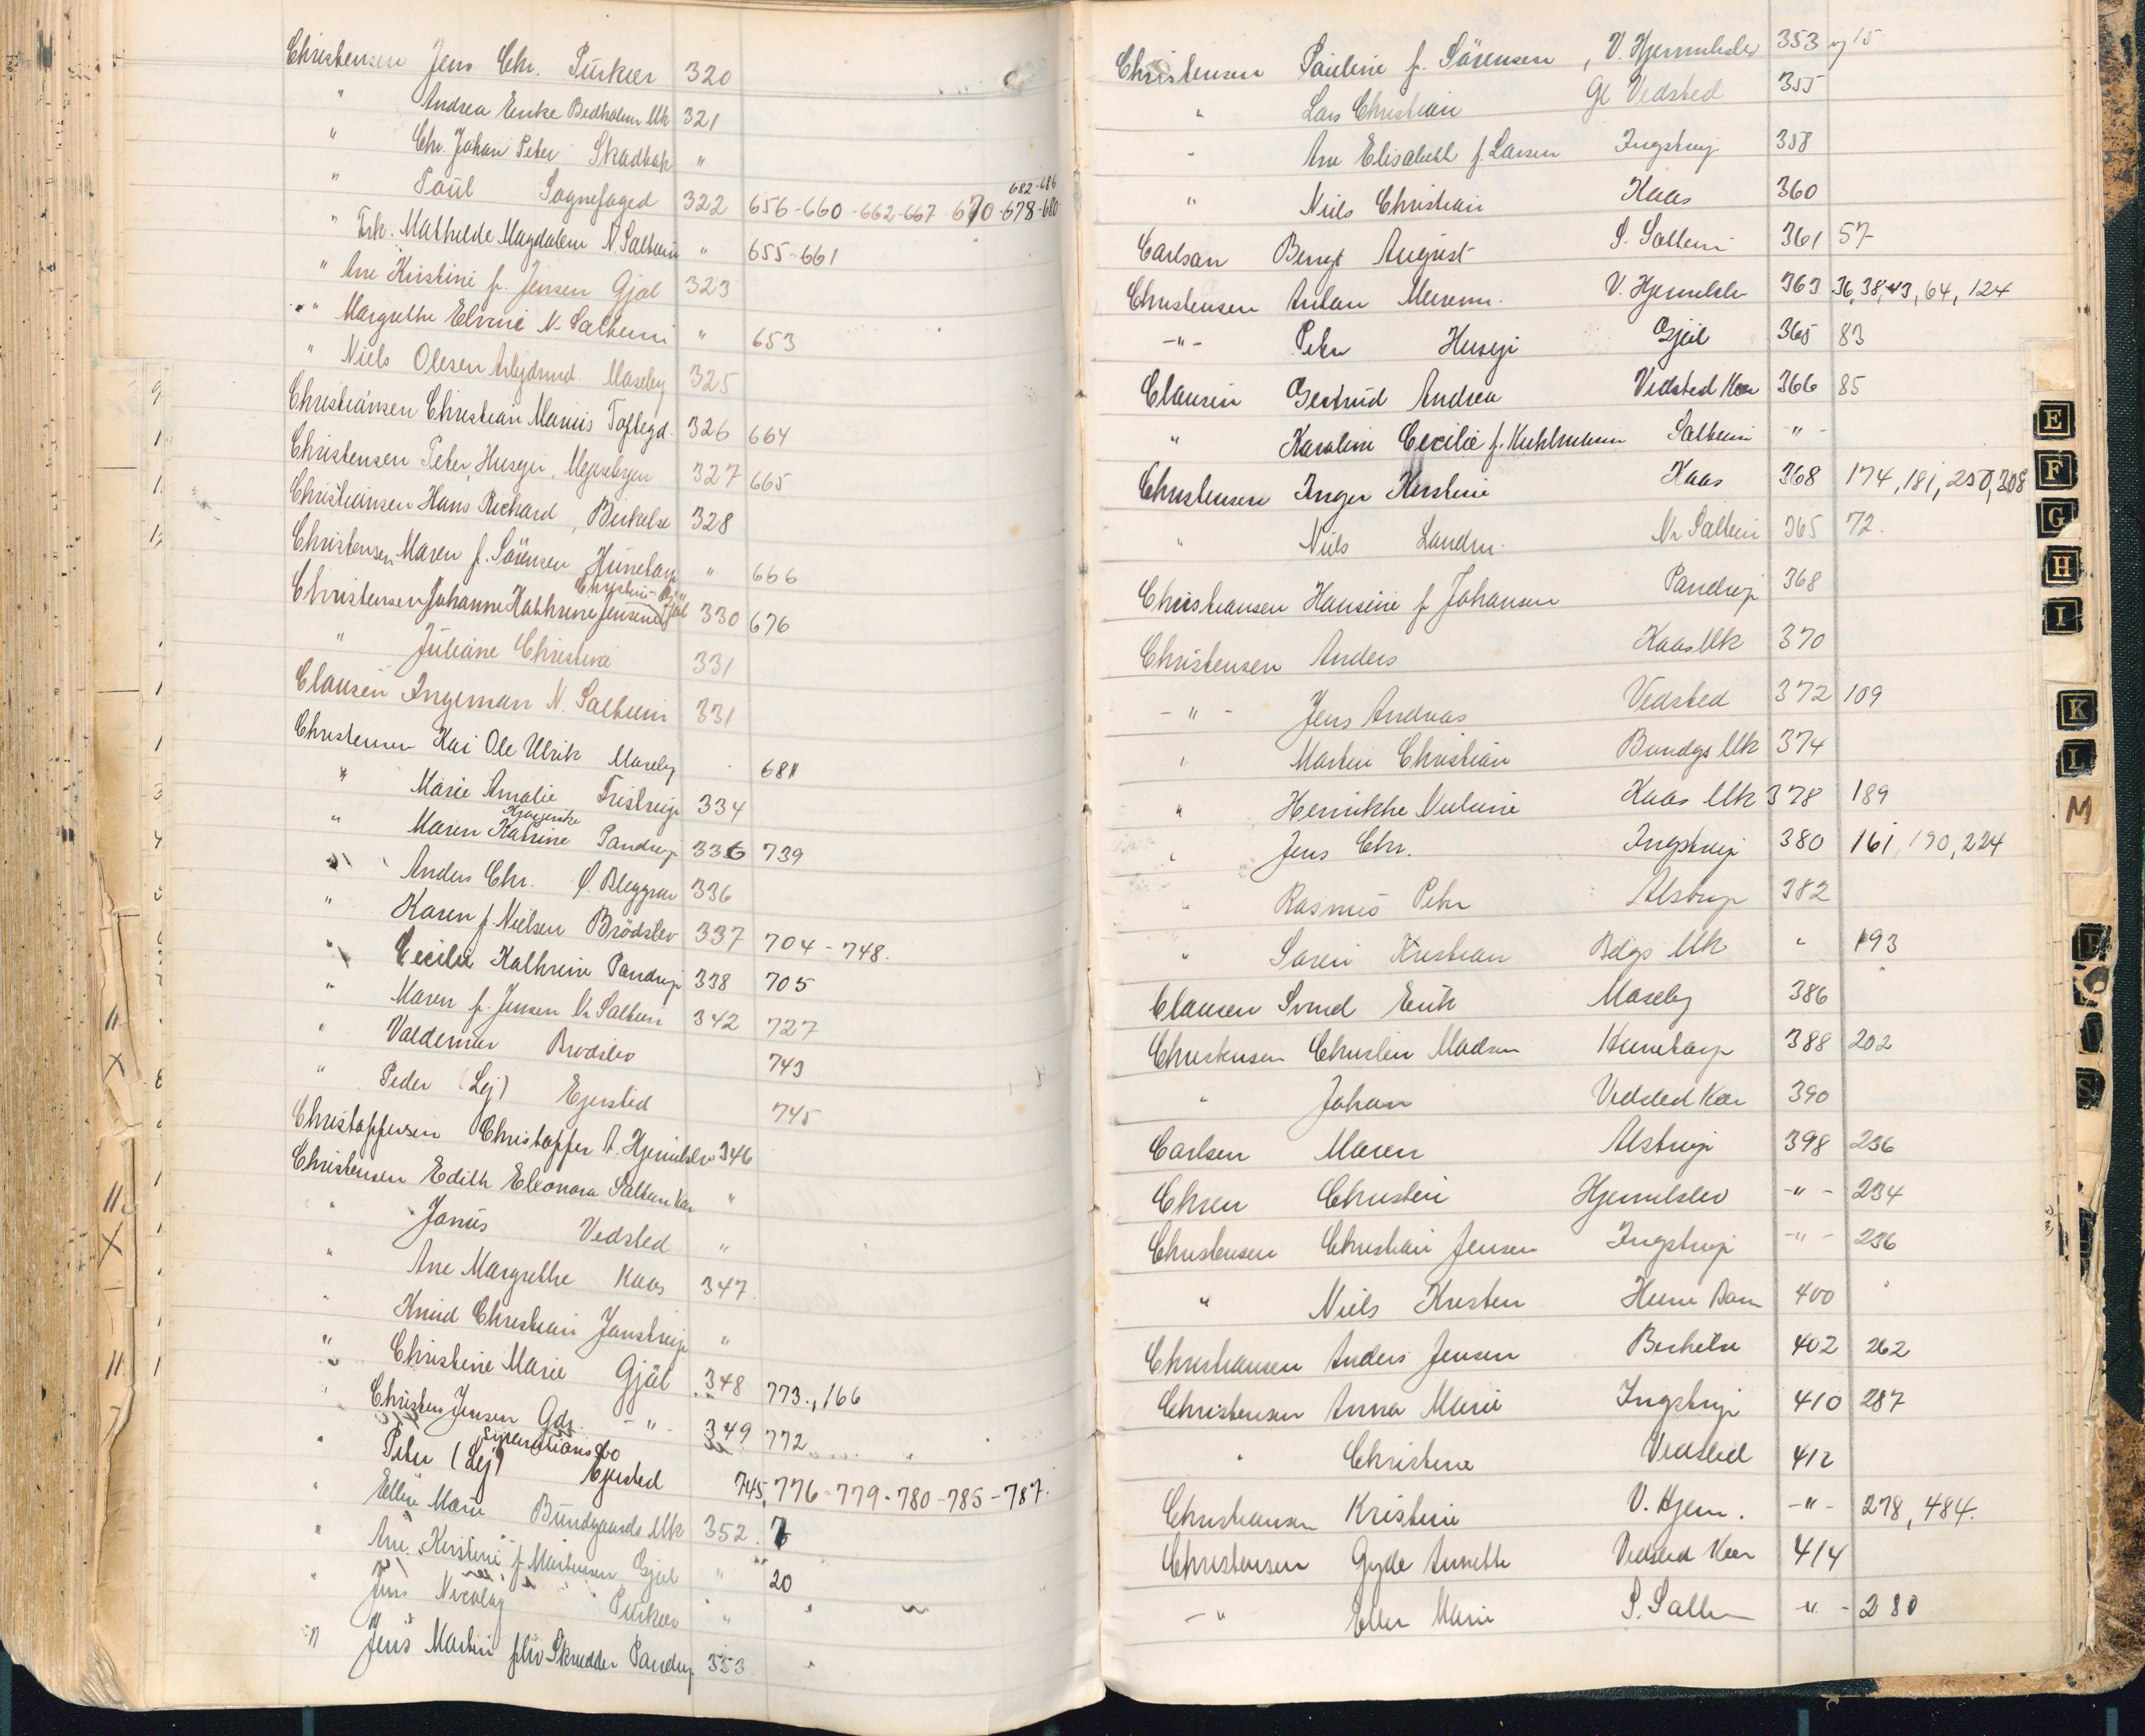 Christensen Jens Chr. Purkær 320
" Andrea Enke Bedholm Mk 321
" Chr. Johan Peter Skadbak "
" Paul Sognefoged 322 656-660-662-667-670-678-680 682-686
" Frk. Mathilde Magdalene N Saltum " 655-661
" Ane Kirstine f. Jensen Gjøl 323
" Margrethe Elvine N. Saltum " 653
" Niels Olesen Arbejdsmd. Moseby 325
Christiansen Christian Marius Toftegd. 326 664
Christensen Peter Husejer, 327 665
Christiansen Hans Richard, Birkelse 328
Christensen Maren f. Sörensen Hunetorp " 666
Christensen Johanne Kathrine Jensen Gjøl 330 676
" Juliane Christine 331
Clausen Ingeman N. Saltum 331
Christensen Kai Ole Ulrik Moseby 681
" Marie Amalie Fristrup 334
" Maren Katrine Pandrup 336 739
" Anders Chr. Ø. Bleggrav 336
" Karen f. Nielsen Brödslev 337 704-748.
" Cecilie Kathrine Pandrup 338 705
" Maren f. Jensen Nr Saltum 342 727
" Valdemar Brødslev 743
" Peder (Lej) Ejersted 745
Christoffersen Christoffer A. Hjermitslev 346
Christensen Edith Eleonora Saltum Kær "
" Janus Vedsted "
" Ane Margrethe Kaas 347
" Knud Christian Janstrup "
" Christine Marie Gjøl 348 773., 166
" Christen Jensen Gdr. -"- 349 772
" Peter (Lej) Separationsbo Ejersted 745, 776-779-780-785-787.
" Ellen Marie Bundgaards Mk 352 7
" Ane Kirstine f. Mortensen Gjøl " 20
" Jens Nicolaj Purkær "
" Jens Martin fhv Skrædder Pandrup 353
Christensen Pauline f. Sörensen, V. Hjermitslev 353 og 15
" Lars Christian Gl Vedsted 355
" Ane Elisabeth f. Larsen Ingstrup 358
" Niels Christian Kaas 360
Carlson Bengt August S. Saltum 361 57
Christensen Anton V. Hjermitslev 363 36, 38, 43, 64, 124
-"- Peter Husejer Gjøl 365 83
Clausen Gertrud Andrea Vedsted Kær 366 85
" Karoline Cecilie f. Kuhlmann Saltum -"-
Christensen Inger Kirstine Kaas 368 174, 181, 250, 308
" Niels Landm. Nr Saltum 365 72.
Christiansen Hansine f Johansen Pandrup 368
Christensen Anders Kaas Mk 370
-"- Jens Andreas Vedsted 372 109
" Martin Christian Bundgs Mk 374
" Henrikke Kaas Mk 378 189
" Jens Chr. Ingstrup 380 161, 190, 224
" Rasmus Peter Alstrup 382
" Søren Kristian Bdgs Mk " 193
Clausen Svend Erik Moseby 386
Christensen Christen Madsen Hunetorp 388 202
" Johan Vedsted Kær 390
Carlsen Maren Alstrup 398 236
Chren Christen Hjermitslev -"- 234
Christensen Christian Jensen Ingstrup -"- 236
" Niels Kresten Hune 400
Christiansen Anders Jensen Birkelse 402 262
Christensen Anna Marie Ingstrup 410 287
" Christine Vedsted 412
Christiansen Kristine V. Hjerm. -"- 278, 484.
Christensen Gyde Annette Vedsted Kær 414
-"- Ellen Marie S. Saltum -"- 280
E
F
G
H
I
K
L
M
S